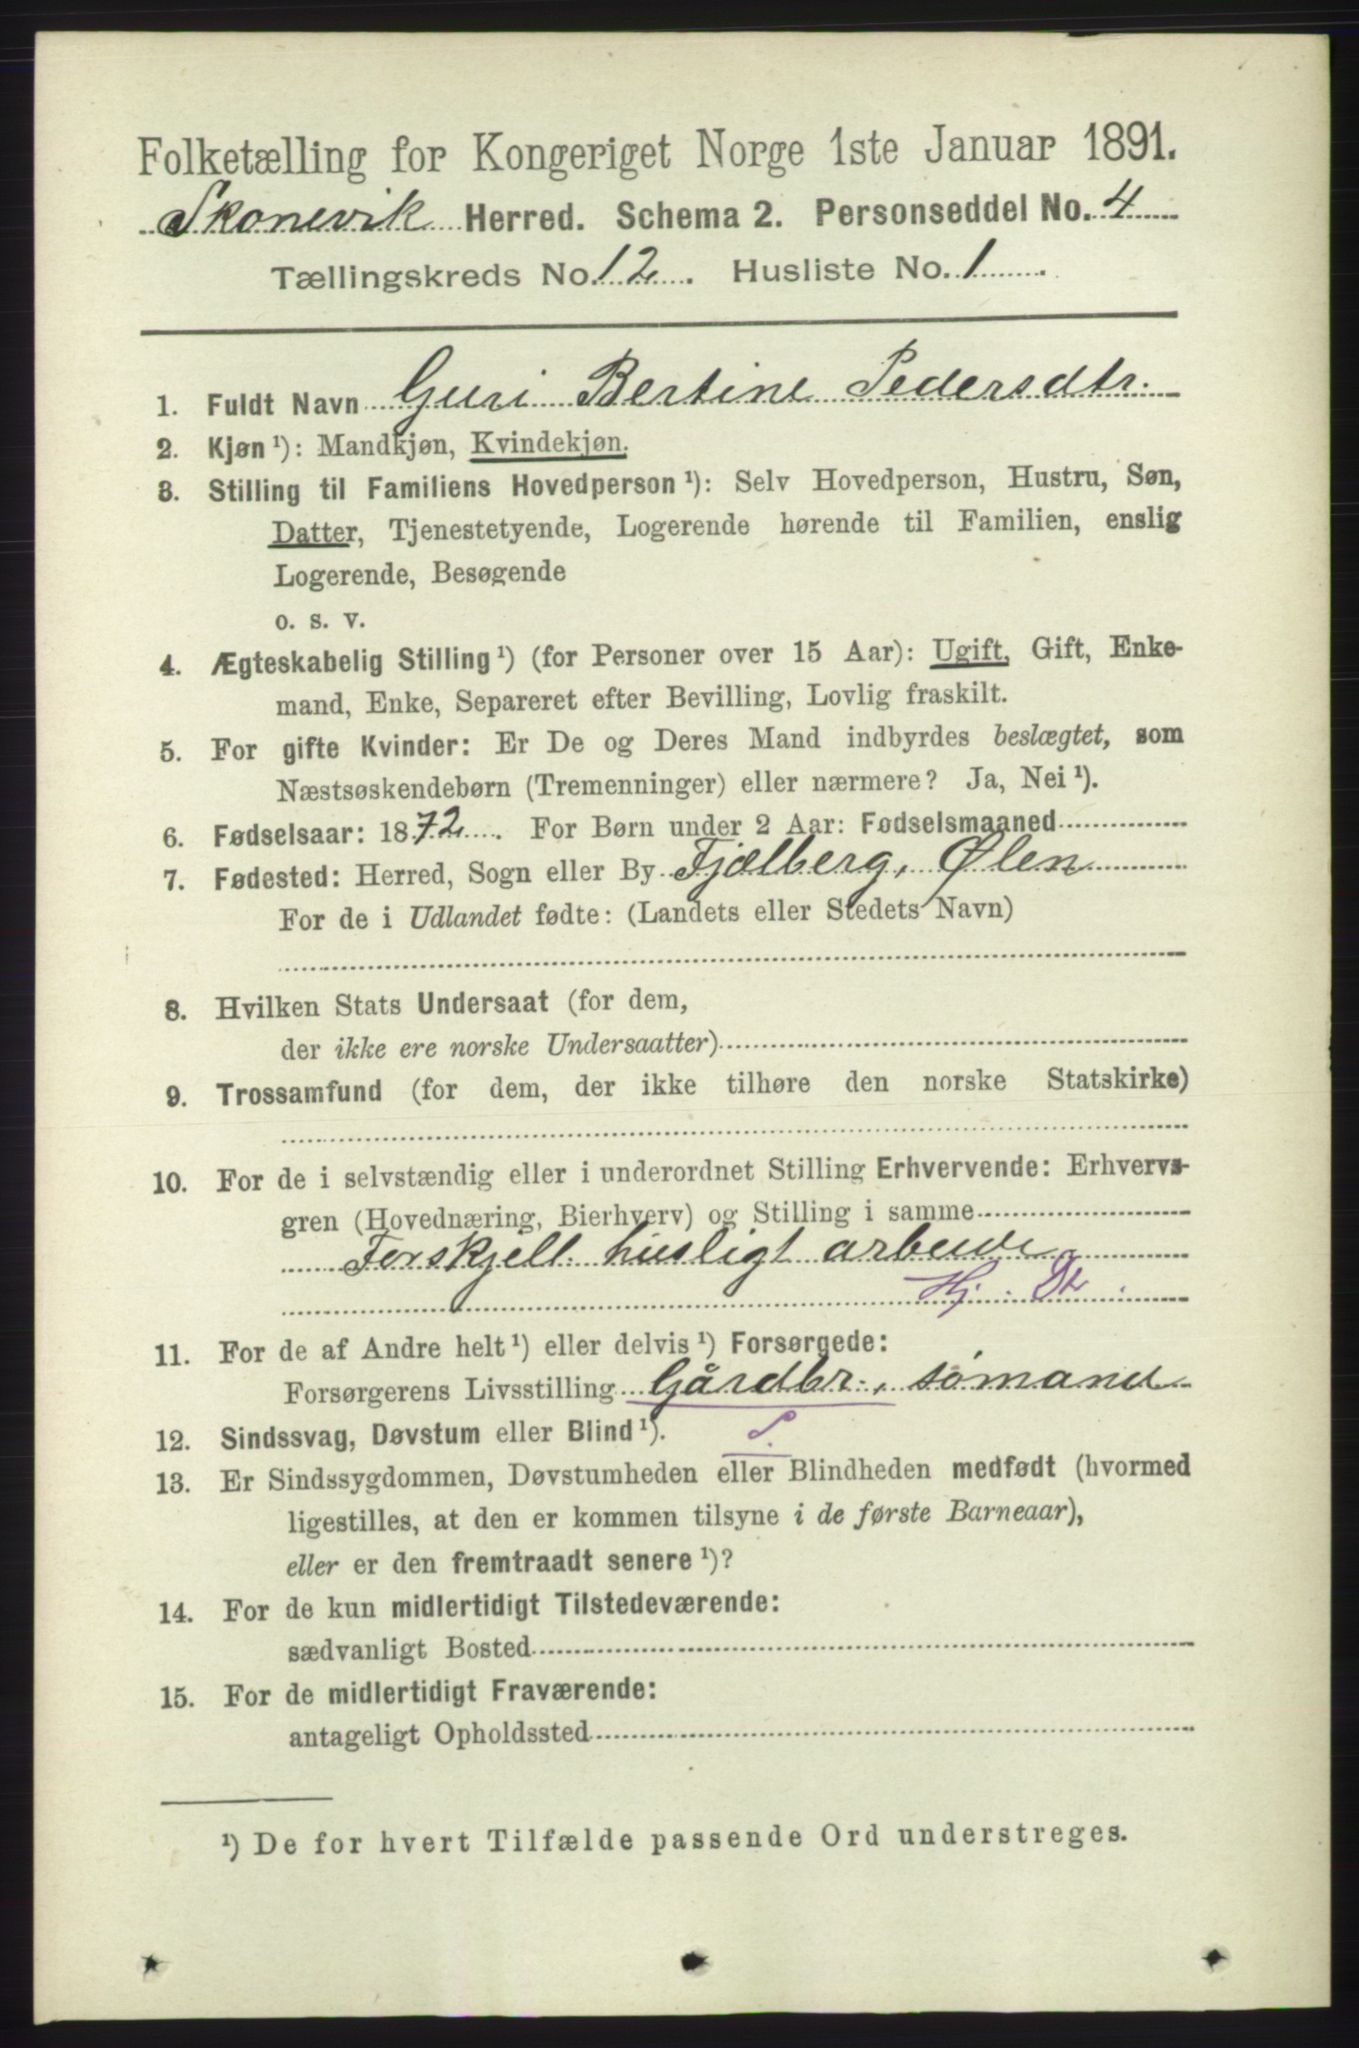 Folketælling for Kongeriget Norge 1ste Januar 1891.
Skonevik Herred. Schema 2. Personseddel No. 4
Tællingskreds No. 12. Husliste No. 1.
1. Fuldt Navn Guri Bertine Pedersdtr.
2. Kjøn ¹): Mandkjøn, Kvindekjøn.
3. Stilling til Familiens Hovedperson ¹): Selv Hovedperson, Hustru, Søn,
Datter, Tjenestetyende, Logerende hørende til Familien, enslig
Logerende, Besøgende
o. s. v.
4. Ægteskabelig Stilling ¹) (for Personer over 15 Aar): Ugift, Gift, Enke-
mand, Enke, Separeret efter Bevilling, Lovlig fraskilt.
5. For gifte Kvinder: Er De og Deres Mand indbyrdes beslægtet, som
Næstsøskendebørn (Tremenninger) eller nærmere? Ja, Nei ¹).
6. Fødselsaar: 1872. For Børn under 2 Aar: Fødselsmaaned
7. Fødested: Herred, Sogn eller By Fjælberg, Ølen
For de i Udlandet fødte: (Landets eller Stedets Navn)
8. Hvilken Stats Undersaat (for dem,
der ikke ere norske Undersaatter)
9. Trossamfund (for dem, der ikke tilhøre den norske Statskirke)
10. For de i selvstændig eller i underordnet Stilling Erhvervende: Erhvervs-
gren (Hovednæring, Bierhverv) og Stilling i samme
Forskjell. husligt arbeide
Hj. Dt.
11. For de af Andre helt ¹) eller delvis ¹) Forsørgede:
Forsørgerens Livsstilling Gårdbr., sömand
12. Sindssvag, Døvstum eller Blind ¹). S.
13. Er Sindssygdommen, Døvstumheden eller Blindheden medfødt (hvormed
ligestilles, at den er kommen tilsyne i de første Barneaar),
eller er den fremtraadt senere ¹)?
14. For de kun midlertidigt Tilstedeværende:
sædvanligt Bosted
15. For de midlertidigt Fraværende:
antageligt Opholdssted
¹) De for hvert Tilfælde passende Ord understreges.